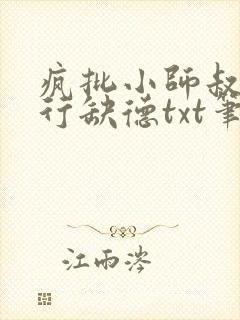 疯批小师叔
行缺德txt笔
江雨涔